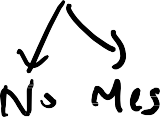 No Mes